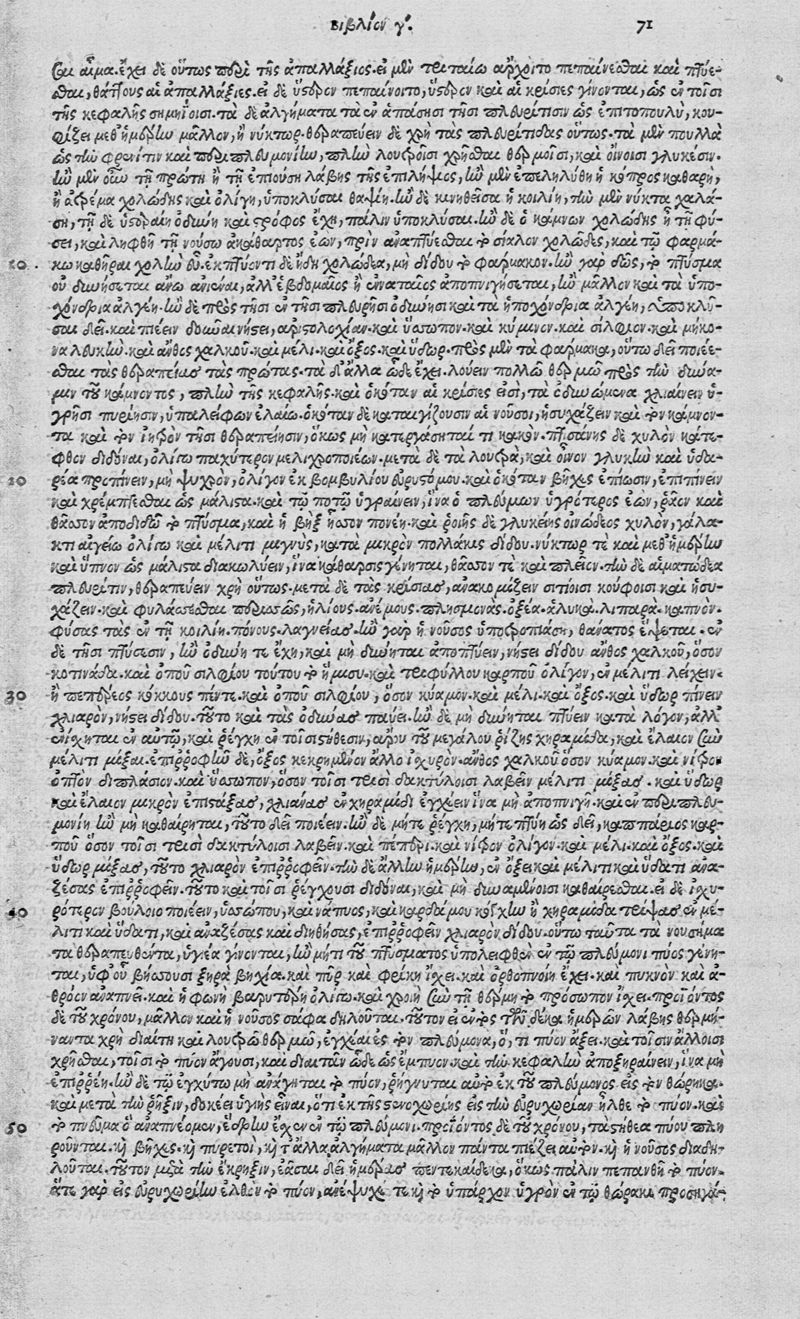 Βιβλίον γ΄. 71
σαι αἷμα. ἔχει δὲ οὕτως περὶ τῆς ἀπαλλάξιος. εἰ μὲν τεταίω ἄρχοιτο πεπαίνεσθαι καὶ πτύε-
σθαι, θάττους αἱ ἀπαλλάξιες. εἰ δὲ ὕστερον πεπαίνοιτο, ὕστερον καὶ αἱ κρίσιες γίνονται, ὡς ἐν τοῖσι
τῆς κεφαλῆς σημηΐοισι. τὰ δὲ ἀλγήματα τὰ ἐν ἁπάσῃσι τῇσι πλευρίτισιν ὡς ἐπιτοπουλὺ, κου-
φίζει μεθ' ἡμέρην μᾶλλον, ἢ νύκτωρ. θεραπεύειν δὲ χρὴ τὰς πλευρίτιδας οὕτως. τὰ μὲν πουλλὰ
ὡς τὴν φρενῖτιν καὶ περιπλευμονίην, πλὴν λουτροῖσι χρῆσθαι θερμοῖσι, καὶ οἴνοισι γλυκέσιν.
ἢν μὲν οὖν τῇ πρώτῃ ἢ τῇ ἐπιούσῃ λάβῃς τῆς ἐπιλήψιος, ἢν μὲν ἐπεληλύθῃ ἡ κόπρος καθαρὴ,
ἢ ἀτρέμα χολώδης καὶ ὀλίγη, ὑποκλύσαι θαψίῃ. ἢν δὲ κινηθεῖσα ἡ κοιλίη, τὴν μὲν νύκτα χαλά-
σῃ, τῇ δὲ ὑστεραίῃ ὀδύνη καὶ στρόφος ἔχῃ, πάλιν ὑποκλύσαι. ἢν δὲ ὁ κάμνων χολώδης ᾖ τῇ φύ-
σει, καὶ ληφθῇ τῇ νούσῳ ἀκάθαρτος ἐὼν, πρὶν ἀναπτύεσθαι τὸ σίαλον χολῶδες, καὶ τῷ φαρμά-
10 κῳ καθῆραι χολὴν εὖ. ἐκπτύοντι δὲ ἤδη χολώδεα, μὴ δίδου τὸ φάρμακον. ἢν γὰρ δῷς, τὸ πτύσμα
οὐ δυνήσεται ἄνω ἀνιέναι, ἀλλ' ἑβδομαῖος ἢ ἐναταῖος ἀποπνιγήσεται, ἢν μᾶλλον καὶ τὰ ὑπο-
χόνδρια ἀλγέῃ. ἢν δὲ πρὸς τῇσι ἐν τῇσι πλευρῇσι ὀδύνῃσι καὶ τὰ ὑποχόνδρια ἀλγέῃ, ὑποκλύ-
σαι δεῖ. καὶ πιέειν δοῦναι νήστει, ἀριστολοχίαν. καὶ ὕσσωπον. καὶ κύμινον. καὶ σίλφιον. καὶ μήκω-
να λευκὴν. καὶ ἄνθος χαλκοῦ. καὶ μέλι. καὶ ὄξος. καὶ ὕδωρ. πρὸς μὲν τὰ φάρμακα, οὕτω δεῖ ποιέε-
σθαι τὰς θεραπείας τὰς πρώτας. τὰ δ' ἄλλα ὧδε ἔχει. λούειν πολλῷ θερμῷ πρὸς τὴν δύνα-
μιν τοῦ κάμνοντος, πλὴν τῆς κεφαλῆς. καὶ ὁκόταν αἱ κρίσιες εἰσὶ, τὰ ὀδυνώμενα χλιαίνειν ὑ-
γρῇσι πυρίῃσιν, ὑπαλείφων ἐλαίῳ. ὁκόταν δὲ καταιγίζουσιν αἱ νοῦσοι, ἡσυχάζειν καὶ τὸν κάμνον-
τα καὶ τὸν ἰητρὸν τῇσι θεραπείῃσιν, ὅκως μὴ κατεργάσηταί τι κακὸν. πτισάνης δὲ χυλὸν κάθε-
φθον διδόναι, ὀλίγῳ παχύτερον μελιχροποιέων. μετὰ δὲ τὰ λουτρὰ, καὶ οἶνον γλυκὺν καὶ ὑδα-
20 ρέα προπίνειν, μὴ ψυχρὸν, ὀλίγον ἐκ βομβυλίου εὐρυστόμου. καὶ ὁκόταν βῆχες ἐπίωσιν, ἐπιπίνειν
καὶ χρέμπτεσθαι ὡς μάλιστα. καὶ τῷ ποτῷ ὑγραίνειν, ἵνα ὁ πλεύμων ὑγρότερος ἐὼν, ῥᾷον καὶ
θᾶσσον ἀποδιδῷ τὸ πτύσμα, καὶ ἡ βὴξ ἧσσον πονέῃ. καὶ ῥοιῆς δὲ γλυκείης οἰνώδεος χυλὸν, γάλα-
κτι αἰγείῳ ὀλίγῳ καὶ μέλιτι μιγνὺς, κατὰ μικρὸν πολλάκις δίδου. νύκτωρ τε καὶ μεθ' ἡμέρην
καὶ ὕπνον ὡς μάλιστα διακωλύειν, ἵνα κάθαρσις γένηται, θᾶσσόν τε καὶ πλεῖον. τὴν δὲ αἱματώδεα
πλευρῖτιν, θεραπεύειν χρὴ οὕτως. μετὰ δὲ τὰς κρίσιας, ἀνακομίζειν σιτίοισι κούφοισι καὶ ἡσυ-
χάζειν. καὶ φυλάσσεσθαι περισσῶς, ἡλίους. ἀνέμους. πλησμονάς. ὀξέα. ἁλυκά. λιπαρά. καπνόν.
φύσας τὰς ἐν τῇ κοιλίῃ. πόνους. λαγνείας. ἢν γὰρ ἡ νοῦσος ὑποτροπιάσῃ, θάνατος ἕψεται. ἐν
δὲ τῇσι πτύσεσιν, ἢν ὀδύνη τε ἔχῃ, καὶ μὴ δύνηται ἀποπτύειν, νήστει δίδου ἄνθος χαλκοῦ, ὅσον
κοτινάδα. καὶ ὀποῦ σιλφίου τούτου τὸ ἥμισυ. καὶ τριφύλλου καρποῦ ὀλίγον, ἐν μέλιτι λείχειν.
30 ἢ πεπέριος κόκκους πέντε. καὶ ὀποῦ σιλφίου, ὅσον κύαμον. καὶ μέλι. καὶ ὄξος. καὶ ὕδωρ πίνειν
χλιαρὸν, νήστει δίδου. τοῦτο καὶ τὰς ὀδύνας παύει. ἢν δὲ μὴ δύνηται πτύειν κατὰ λόγον, ἀλλ'
ἐνίσχηται ἐν αὐτῷ, καὶ ῥέγχῃ ἐν τοῖσι στήθεσιν, ἄρου τοῦ μεγάλου ῥίζης χηραμίδα, καὶ ἔλαιον σὺν
μέλιτι μίξαι. ἐπιῤῥοφῆν δὲ, ὄξος κεκρημένον ἄλλο ἰσχυρόν. ἄνθος χαλκοῦ ὅσον κύαμον. καὶ νίτρον
ὀπτὸν διπλάσιον. καὶ ὕσσωπον, ὅσον τοῖσι τρισὶ δακτύλοισι λαβεῖν μέλιτι μίξας. καὶ ὕδωρ
καὶ ἔλαιον μικρὸν ἐπιστάξας, χλιήνας ἐν χηραμίδι ἐγχέειν ἵνα μὴ ἀποπνιγῇ. καὶ ἐν περιπλευ-
μονίῃ ἢν μὴ καθαίρηται, τοῦτο δεῖ ποιέειν. ἢν δὲ μήτε ῥέγχῃ, μήτε πτύῃ ὡς δεῖ, καππάριος καρ-
ποῦ ὅσον τοῖσι τρισὶ δακτύλοισι λαβεῖν. καὶ πέπερι. καὶ νίτρον ὀλίγον. καὶ μέλι. καὶ ὄξος. καὶ
ὕδωρ μίξας, τοῦτο χλιαρὸν ἐπιῤῥοφεῖν. τὴν δὲ ἄλλην ἡμέρην, ἐν ὄξει καὶ μέλιτι καὶ ὕδατι ἀνα-
ζέσας ἐπιῤῥοφεῖν. τοῦτο καὶ τοῖσι ῥέγχουσι διδόναι, καὶ μὴ δυναμένοισι καθαίρεσθαι. εἰ δὲ ἰσχυ-
40 ρότερον βούλοιο ποιέειν, ὑσσώπου, καὶ νάπυος, καὶ καρδάμου κόγχην ἢ χηραμίδα τρίψας ἐν μέ-
λιτι καὶ ὕδατι, καὶ ἀναζέσας καὶ διηθήσας, ἐπιῤῥοφεῖν χλιαρὸν δίδου. οὕτω ταῦτα τὰ νουσήμα
τα θεραπευθέντα, ὑγιέα γίνονται, ἢν μή τι τοῦ πτύσματος ὑπολειφθὲν ἐν τῷ πλεύμονι πύος γένη-
ται, ὑφ' οὗ βήσσουσι ξηρὰ βηχία. καὶ πῦρ καὶ φρίκη ἴσχει. καὶ ὀρθοπνοίη ἔχει. καὶ πυκνὸν καὶ ἀ-
θρόον ἀναπνεῖ. καὶ ἡ φωνὴ βαρυτέρη ὀλίγῳ. καὶ χροιὴ σὺν τῇ θέρμῃ τὸ πρόσωπον ἴσχει. προϊόντος
δὲ τοῦ χρόνου, μᾶλλον καὶ ἡ νοῦσος σάφα δηλοῦται. τοῦτον εἰ ἐντὸς τῶν δέκα ἡμερέων λάβῃς θερμή-
ναντα χρὴ διαίτῃ καὶ λουτρῷ θερμῷ, ἐγχέαι ἐς τὸν πλεύμονα, ὅ, τι πύον ἄξει. καὶ τοῖσιν ἄλλοισι
χρῆσθαι, τοῖσι τὸ πύον ἄγουσι, καὶ διαιτᾶν ὧδε ὡς ἔμπυον. καὶ τὴν κεφαλὴν ἀποξηραίνειν, ἵνα μὴ
ἐπιῤῥέῃ. ἢν δὲ τῷ ἐγχύτῳ μὴ ἀνάγηται τὸ πύον, ῥήγνυται αὐτὸ ἐκ τοῦ πλεύμονος εἰς τὸν θώρηκα.
καὶ μετὰ τὴν ῥῆξιν, δοκέει ὑγιὴς εἶναι, ὅτι ἐκ τῆς στενοχωρίης εἰς τὴν εὐρυχωρίαν ἦλθε τὸ πύον. καὶ
50 τὸ πνεῦμα ὃ ἀναπνέομεν, ἕδρην ἔχον ἐν τῷ πλεύμονι. προϊόντος δὲ τοῦ χρόνου, τὰ στήθεα πύου πλη
ροῦνται. καὶ βῆχες. καὶ πυρετοὶ, καὶ τἄλλα ἀλγήματα μᾶλλον πάντα πιέζει αὐτὸν. καὶ ἡ νοῦσος διαδη-
λοῦται. τοῦτον μετὰ τὴν ἔκρηξιν, ἐᾶσαι δεῖ ἡμέρας πεντεκαίδεκα, ὅκως πάλιν πεπανθῇ τὸ πύον.
ἅτε γὰρ εἰς εὐρυχωρίην ἐλθὸν τὸ πύον, ἀνέψυχέ τε καὶ τὸ ὑπάρχον ὑγρὸν ἐν τῷ θώρακι προσηγά-